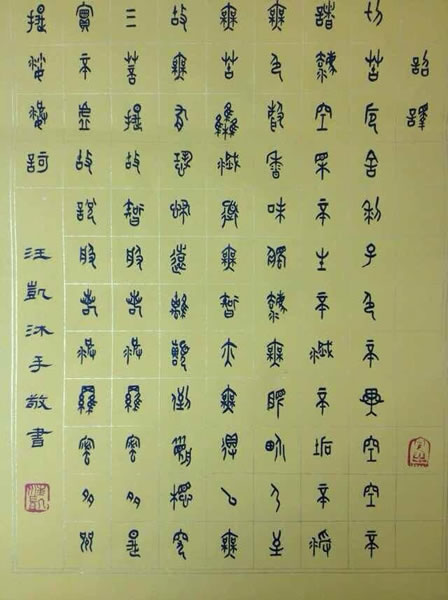 詔譯
切苦厄舍利子色不異空空不
諸法空相不生不滅不垢不淨
無色聲香味觸法無眼界乃至
無苦集滅道無智亦無得以無
故無有恐怖遠離顛倒夢想究
三菩提故智般若波羅蜜多是
實不虛故說般若波羅蜜多咒
提娑婆訶
汪凱沐手敬書